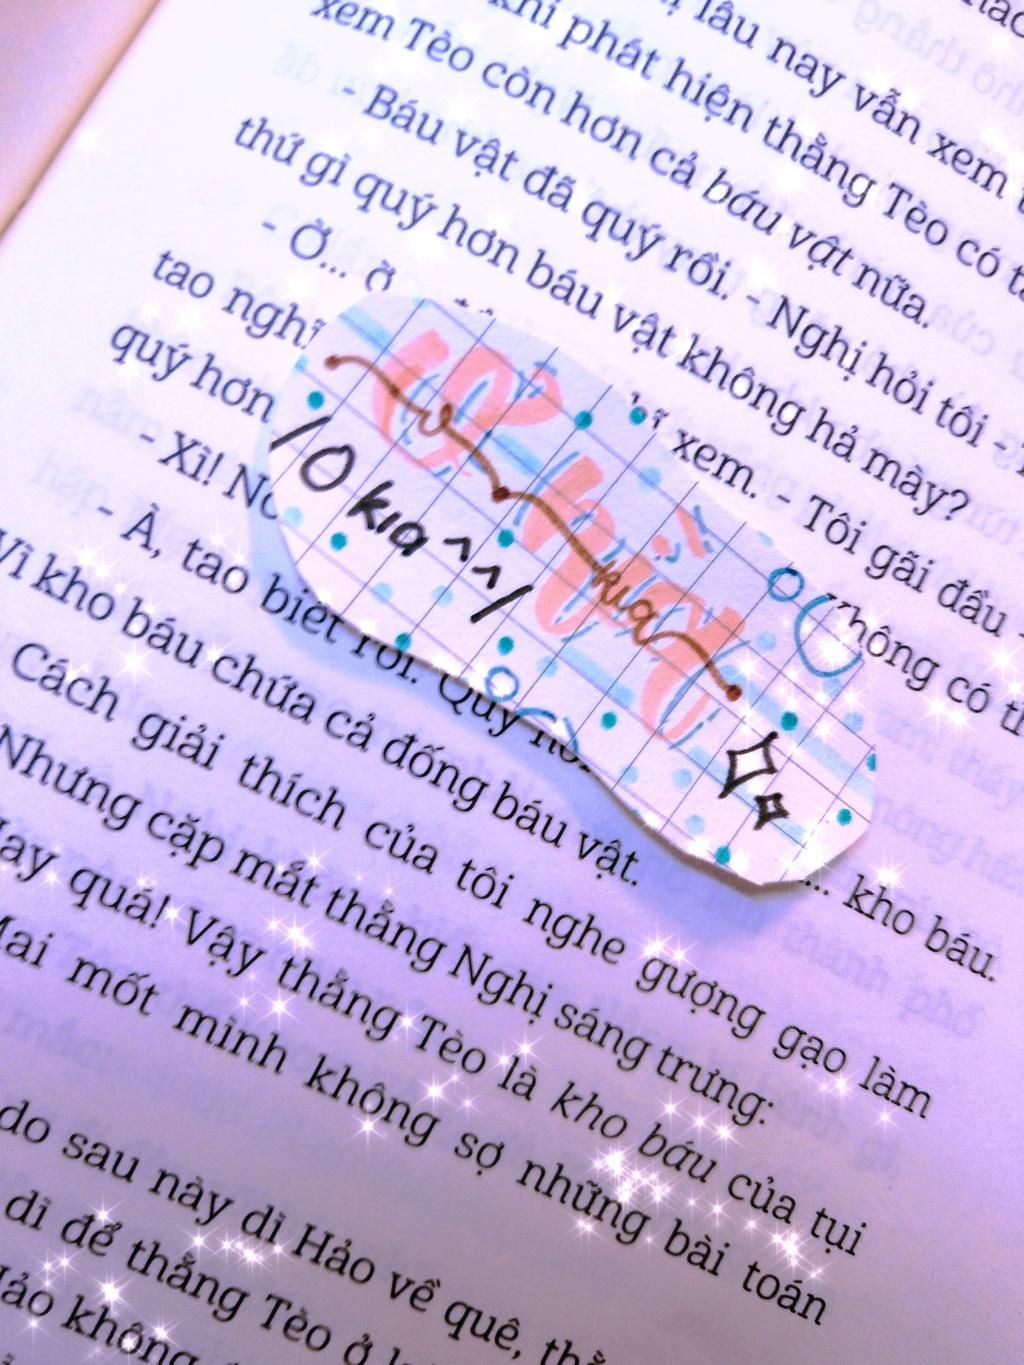 lâu nay vẫn xem
khi phát hiện thằng Tèo có
xem Tèo còn hơn cả báu vật nữa.
- Báu vật đã quý rồi. - Nghị hỏi tôi -
thứ gì quý hơn báu vật không hả mày?
- Ờ... ờ
xem. - Tôi gãi đầu -
tao nghĩ
không có
quý hơn
- Xì!
... kho báu.
- À, tao biết rồi. Quý
Vì kho báu chứa cả đống báu vật.
Cách giải thích của tôi nghe gượng gạo làm
Nhưng cặp mắt thằng Nghị sáng trưng:
Hay quá! Vậy thằng Tèo là kho báu của tụi
Mai mốt mình không sợ những bài toán
do sau này dì Hảo về quê,
dì để thằng Tèo ở
Hảo không
kia
/O kia ^^/